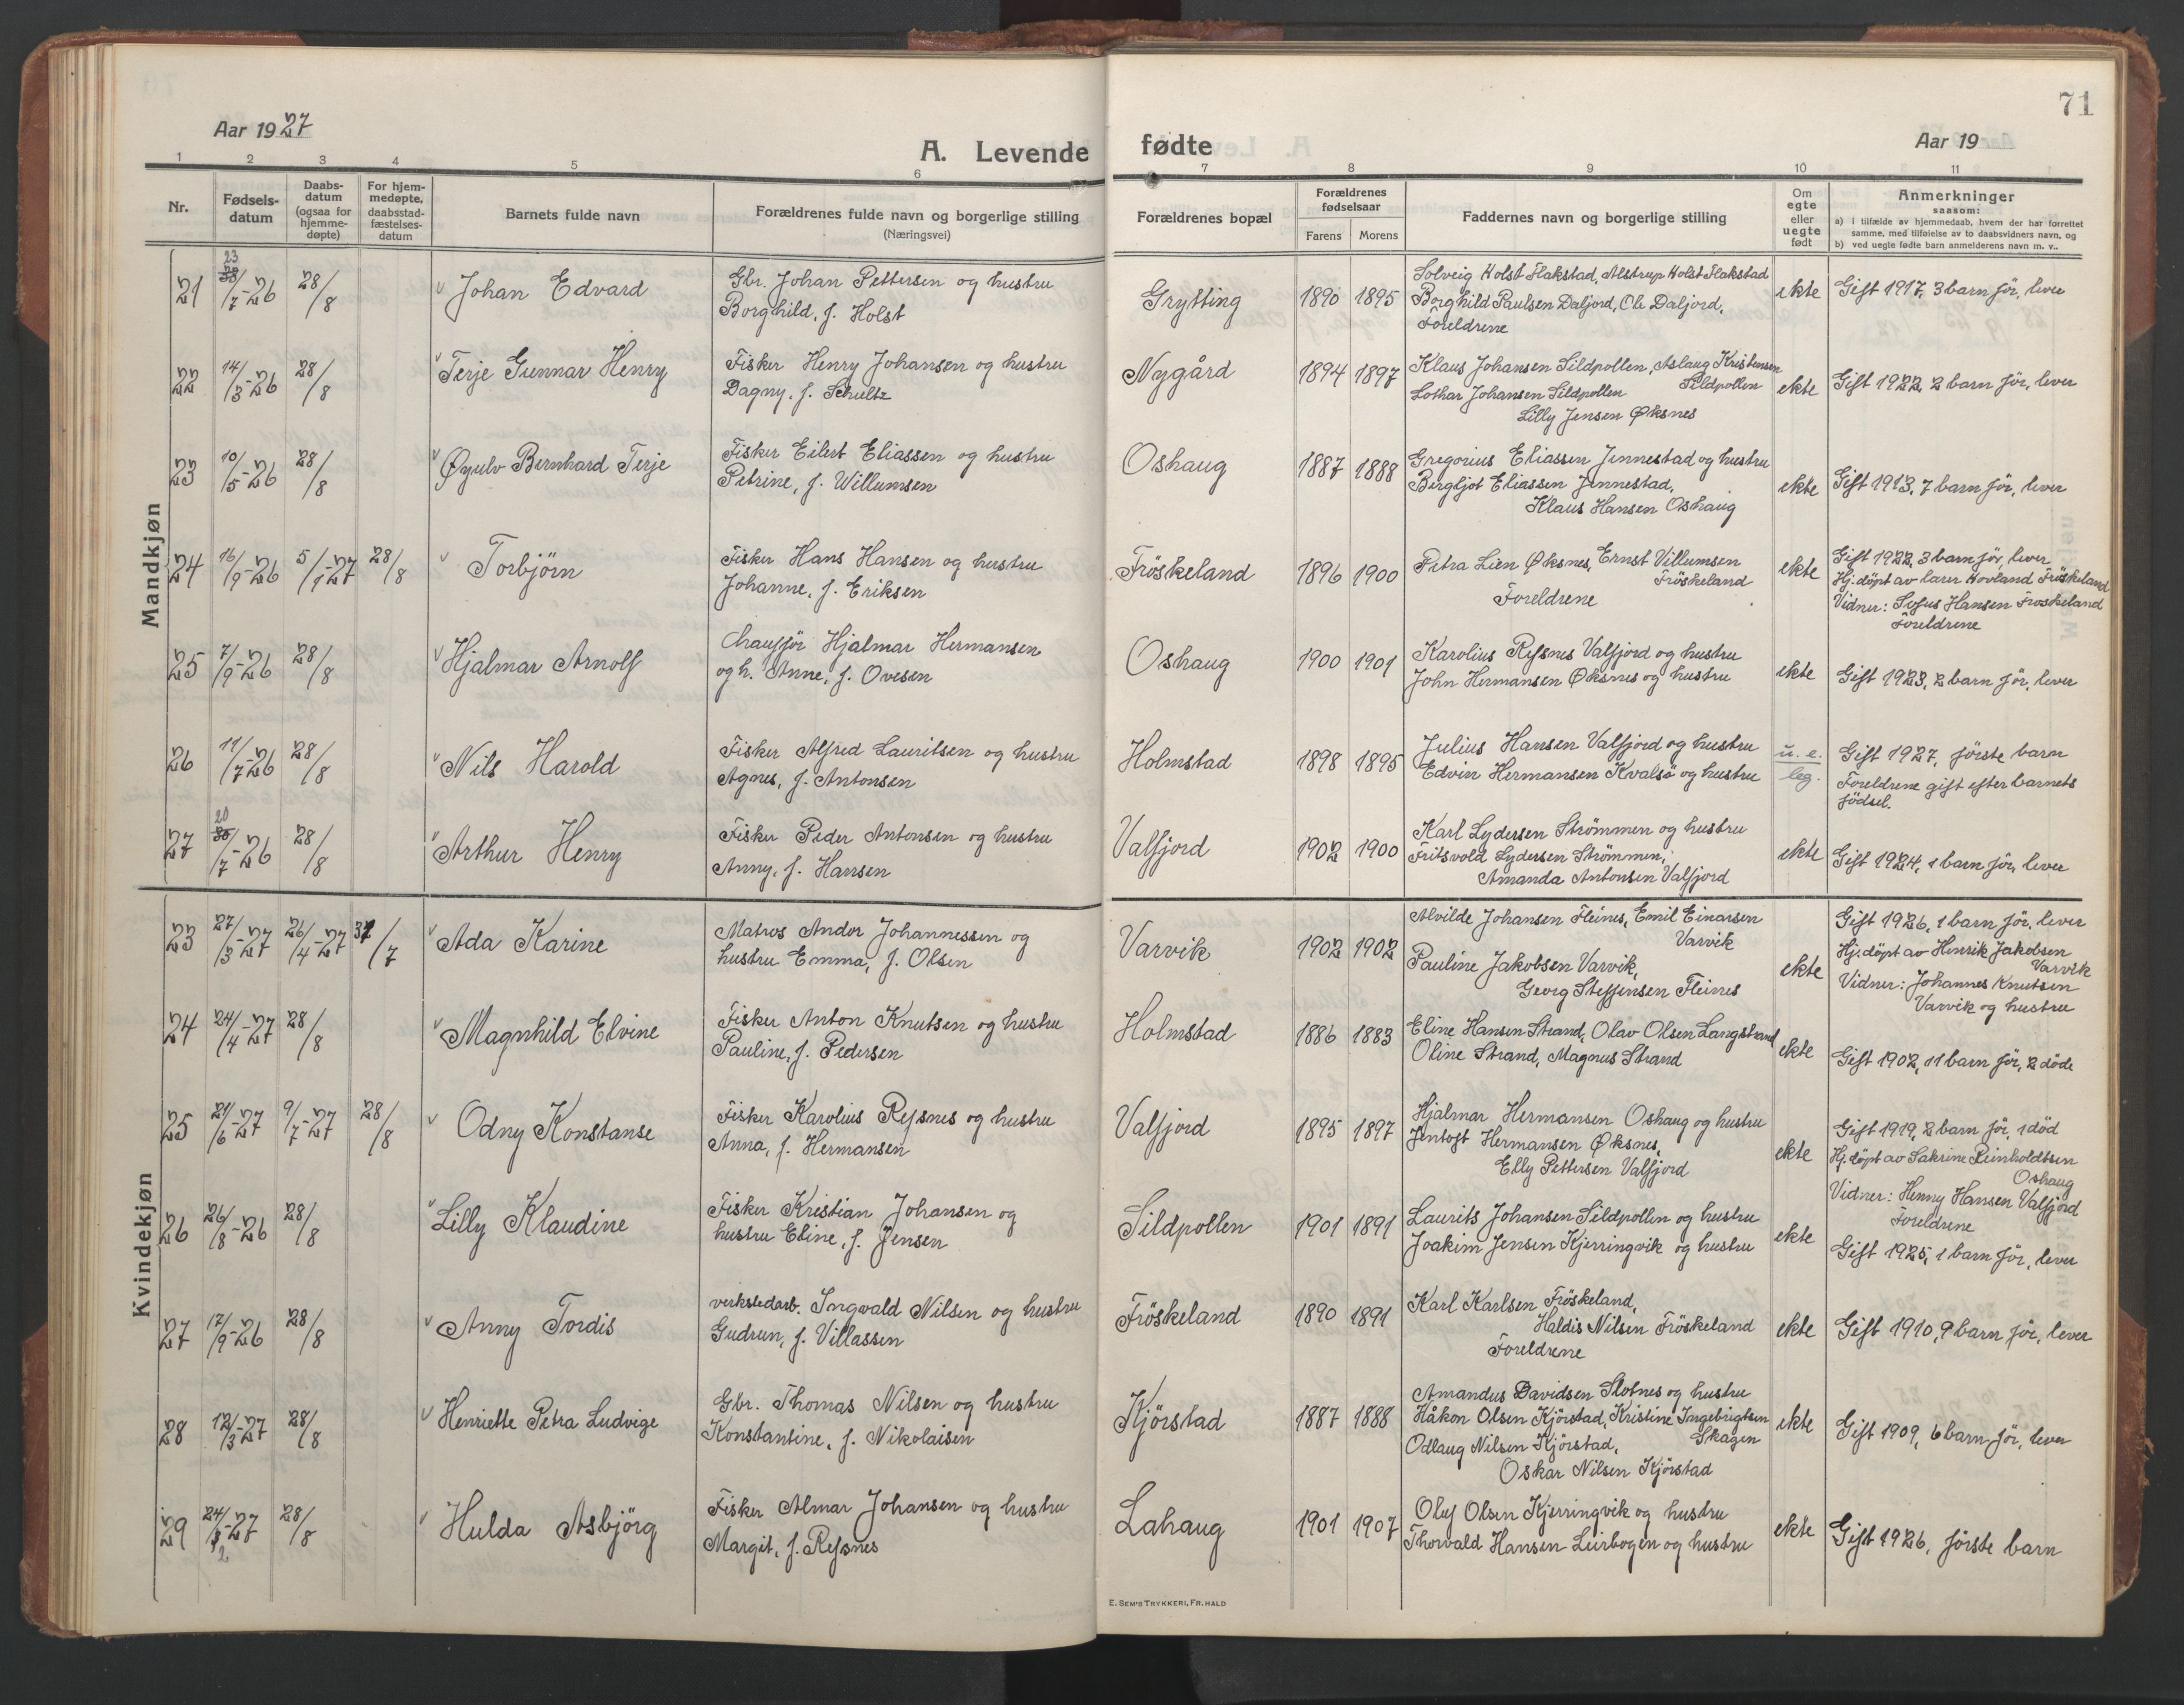 71
Aar 1927
A. Levende fødte
Aar 19
1 2 3 4 5 6 7 8 9 10 11
Nr.
Fødsels-datum
Daabs-datum (ogsaa for hjemme-døpte)
For hjem-medøpte, daabsstad-fæstelses-datum
Barnets fulde navn
Forældrenes fulde navn og borgerlige stilling
(Næringsvei)
Forældrenes bopæl
Forældrenes fødselsaar
Farens Morens
Faddernes navn og borgerlige stilling
Om egte eller uegte født
Anmerkninger
saasom:
a) i tilfælde av hjemmedaab, hvem der har forrettet
samme, med tilføielse av to daabsvidners navn, og
b) ved uegte fødte barn anmelderens navn m. v..
Mandkjøn
21 23/7-26 28/8 Johan Edvard
Gbr. Johan Pettersen og hustru
Borghild, f. Holst
Grytting 1890 1895
Solveig Holst Flakstad, Alstrup Holst Flakstad
Borghild Paulsen Daljord, Ole Daljord,
Foreldrene
ekte Gift 1917, 3 barn før, lever
22 14/3-26 28/8 Terje Gunnar Henry
Fisker Henry Johansen og hustru
Dagny, f. Schultz
Nygård 1894 1897
Klaus Johansen Sildpollen, Aslaug Kristensen
Sildpollen
Lothar Johansen Sildpollen
Lilly Jensen Øksnes
ekte Gift 1922, 2 barn før, lever
23 10/5-26 28/8 Øyulv Bernhard Terje
Fisker Eilert Eliassen og hustru
Petrine, f. Willumsen
Oshaug 1887 1888
Gregorius Eliassen Jennestad og hustru
Bergljot Eliassen Jennestad,
Klaus Hansen Oshaug
ekte Gift 1913, 7 barn før, lever
24 16/9-26 5/1-27 28/8 Torbjörn
Fisker Hans Hansen og hustru
Johanne, f. Eriksen
Fröskeland 1896 1900
Petra Lien Øksnes, Ernst Villumsen
Fröskeland
Foreldrene
ekte Gift 1922, 3 barn før, lever
Hj. döpt av lærer Hovland Fröskeland
Vidner: Sofus Hansen Froskeland
Foreldrene
25 7/9-26 28/8 Hjalmar Arnolf
Chaufför Hjalmar Hermansen
og h. Anne, f. Ovesen
Oshaug 1900 1901
Karolius Refsnes Valfjord og hustru
John Hermansen Øksnes og hustru
ekte Gift 1923, 2 barn før, lever
26 11/7-26 28/8 Nils Harold
Fisker Alfred Lauritsen og hustru
Agnes, f. Antonsen
Holmstad 1898 1895
Julius Hansen Valfjord og hustru
Edvin Hermansen Kvalsö og hustru
u. e.
leg.
Gift 1927, förste barn
Foreldrene gift efter barnets
födsel.
27 20/7-26 28/8 Arthur Henry
Fisker Peder Antonsen og hustru
Anny, f. Hansen
Valfjord 1902 1900
Karl Lydersen Strömmen og hustru
Fritsvold Lydersen Strömmen,
Amanda Antonsen Valfjord
ekte Gift 1924, 1 barn før, lever
Kvindekjøn
23 27/3-27 26/4-27 31/7 Ada Karine
Matros Andor Johannessen og
hustru Emma, f. Olsen
Varvik 1902 1902
Alvilde Johansen Fleines, Emil Einarsen
Varvik
Pauline Jakobsen Varvik,
Georg Steffensen Fleines
ekte Gift 1926, 1 barn før, lever
Hj. döpt av Henrik Jakobsen
Varvik
Vidner: Johannes Knutsen
Varvik og hustru
24 24/4-27 28/8 Magnhild Elvine
Fisker Anton Knutsen og hustru
Pauline, f. Pedersen
Holmstad 1886 1883
Eline Hansen Strand, Olav Olsen Langstrand
Oline Strand, Magnus Strand
ekte Gift 1902, 11 barn før, 2 döde
25 21/6-27 9/7-27 28/8 Odny Konstanse
Fisker Karolius Refsnes og hustru
Anna, f. Hermansen
Valfjord 1895 1897
Hjalmar Hermansen Oshaug og hustru
Jentoft Hermansen Øksnes,
Elly Pettersen Valfjord
ekte Gift 1919, 2 barn før, 1 död
Hj. döpt av Sakrine Reinholdtsen
Oshaug
Vidner: Henny Hansen Valfjord
Foreldrene
26 26/8-26 28/8 Lilly Klaudine
Fisker Kristian Johansen og
hustru Eline, f. Jensen
Sildpollen 1901 1891
Laurits Johansen Sildpollen og hustru
Joakim Jensen Kjerringvik og hustru
ekte Gift 1925, 1 barn før, lever
27 17/9-26 28/8 Anny Tordis
verkstedarb. Ingvald Nilsen og hustru
Gudrun, f. Villassen
Fröskeland 1890 1891
Karl Karlsen Fröskeland,
Haldis Nilsen Fröskeland
Foreldrene
ekte Gift 1910, 9 barn før, lever
28 12/3-27 28/8 Henriette Petra Ludvige
Gbr. Thomas Nilsen og hustru
Konstansine, f. Nikolaisen
Kjörstad 1887 1888
Amandus Davidsen Slotnes og hustru
Håkon Olsen Kjörstad, Kristine Ingebrigtsen
Skagen
Odlaug Nilsen Kjörstad,
Oskar Nilsen Kjörstad
ekte Gift 1909, 6 barn før, lever
29 24/2-27 28/8 Hulda Asbjörg
Fisker Almar Johansen og hustru
Margit, f. Refsnes
Lahaug 1901 1907
Oluf Olsen Kjerringvik og hustru
Thorvald Hansen Leirbogen og hustru
ekte Gift 1926, förste barn
E. SEM'S TRYKKERI, FR. HALD